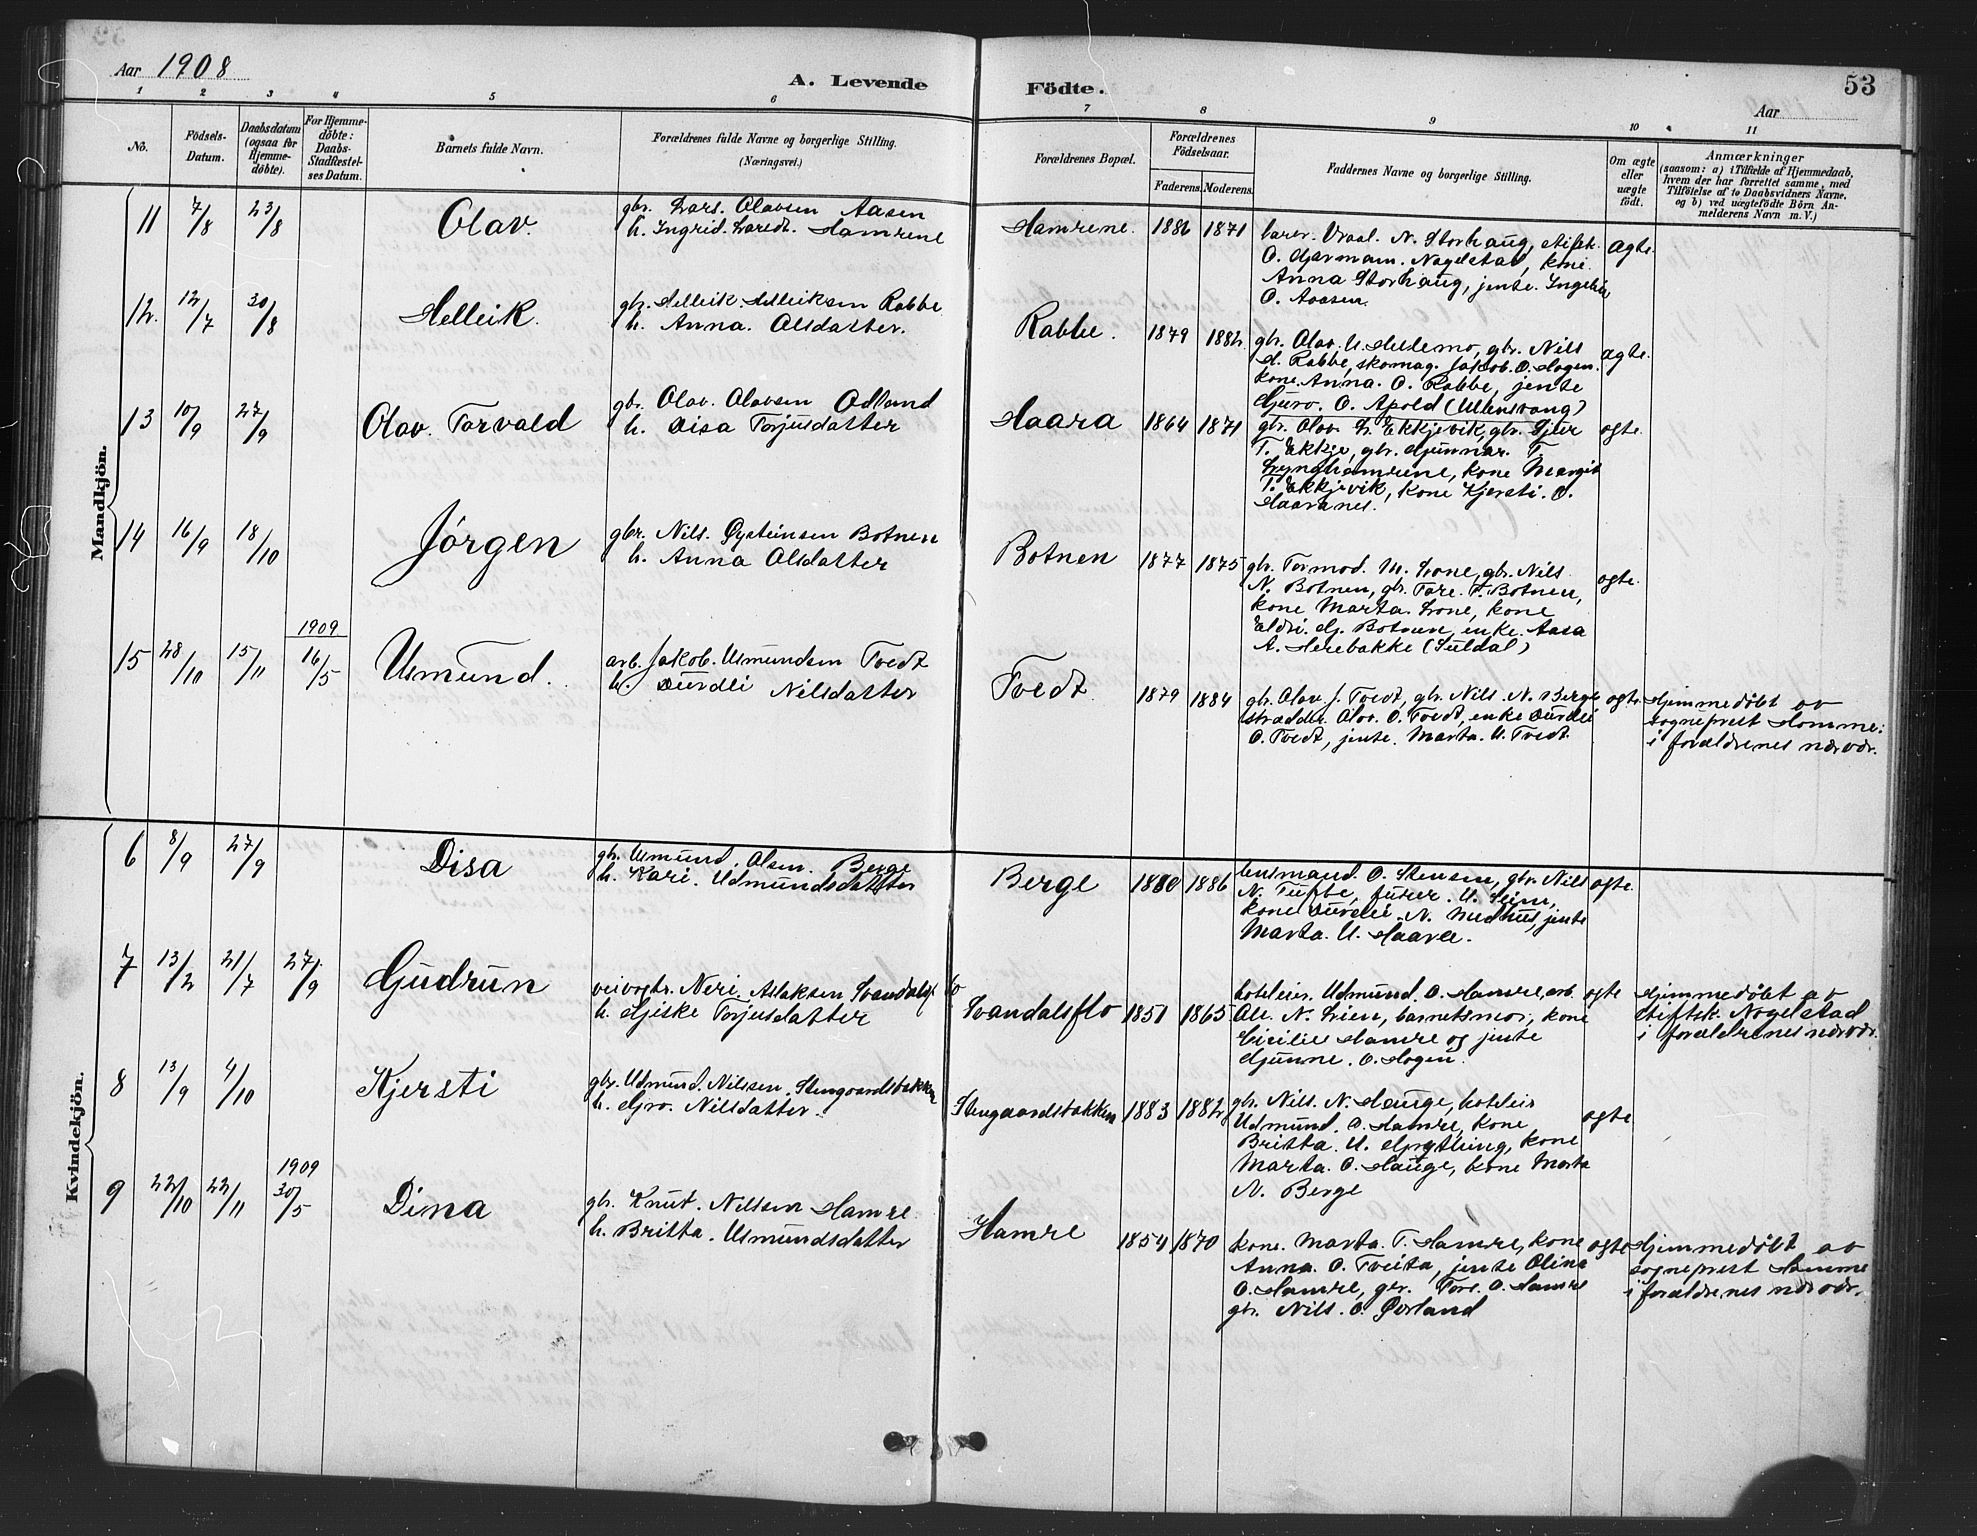 Aar 1908
A. Levende Födte.
53
Aar
1 2 3 4 5 6 7 8 9 10 11
No.
Födsels-Datum.
Daabsdatum (ogsaa for Hjemme-døbte).
For Hjemme-døbte: Daabs-Stadfæstel-ses Datum.
Barnets fulde Navn.
Forældrenes fulde Navne og borgerlige Stilling. (Næringsvei.)
Forældrenes Bopæl.
Forældrenes Födselsaar.
Faderens. Moderens.
Faddernes Navne og borgerlige Stilling.
Om ægte eller uægte født.
Anmærkninger
(saasom: a) i Tilfælde af Hjemmedaab,
hvem der har forrettet samme, med
Tilföielse af to Daabsvidners Navne,
og b) ved uægtefödte Börn An-
melderens Navn m. V.)
Mandkjön.
11 7/8 23/8 Olav.
gbr. Lars. Olavsen Aasen
h. Ingrid. Larsdt. Hamrene
Hamrene. 1886 1871
Vraal. N. Storhaug, stifsk.
O. Gjermann. Nagelstad, kone
Anna Storhaug, jente. Ingebor
O. Aaasen.
ægte.
12. 12/7 30/8 Helleik.
gbr. Helleik. Helleiksen Rabbe
h. Anna. Olsdatter.
Rabbe. 1879 1882.
gbr. Olav. U. Heldemo, gbr. Nils
H. Rabbe, skomag. Jakob. O. Hogen.
kone. Anna. O. Rabbe, jente
Guro. O. Apold (Ullensvang)
ægte.
13 10/9 27/9 Olav. Torvald
gbr. Olav. Olavsen Odland
h. Disa Torjusdatter
Haara 1864 1871
gbr. Olav. L. Ekkjevik, gbr. Sjur
T. Ekkje, gbr. Gunnar. T.
Lynghamrene, kone Margit
T. Ekkjevik, kone Kjersti. O.
Haaranes.
ægte.
14 16/9 18/10 Jörgen
gbr. Nils. Øysteinsen Botnen
h. Anna Olsdatter
Botnen 1877 1875
gbr. Tormod. M. Lone, gbr. Nils
N. Botnen, gbr. Tore. T. Botnen,
kone Marta. Lone, kone
Eldri. G. Botnen, enke. Aasa
A. Herebakke (Suldal)
ægte.
15 28/10 15/11 1909 16/5 Usmund.
arb. Jakob. Usmundsen Tvedt
h. Durdli Nilsdatter
Tvedt. 1879 1884
gbr. Olav J. Tvedt, gbr. Nils. N. Berge
skrædder. Olav. O. Tvedt, enke Durdlei
O. Tvedt, jente. Marta. U. Tvedt
ægte.
Hjemmedøbt av
sogneprest Homme
i forældrenes nærvær.
Kvindekjön.
6 8/9 27/9 Disa
gbr. Usmund. Olsen. Berge
h. Kari. Udmundsdatter
Berge 1880 1886
husmand. O. Stensen, gbr. Nils
N. Tufte, furer. U. Seim,
kone Durdlei. N. Medhus, jente
Marta. U. Haara.
ægte.
7 13/2 21/7 27/9 Gudrun
veivogtr. Neri. Aslaksen Svandalsflo
h. Giske Torjusdatter
Svandalsflo 1851 1865
hoteleier. Udmund. O. Hamre, arb.
Ole. N. Lien, barnets mor, kone
Cicilie Hamre og jente
Gunne. O. Hogen.
ægte
Hjemmedøbt av
stiftsk. Nagelstad
i forældrenes nærvær.
8 13/9 4/10 Kjersti
gbr. Udmund. Nilssen. Stengaardsbakken
h. Gro. Nilsdatter.
Stengaardsbakken 1883 1882
gbr. Nils. N. Hauge, hoteleier
Udmund. O. Hamre, kone
Britta. U. Grytling, kone
Marta. O. Hauge, kone Marta
N. Berge
ægte
9 22/10 22/11 1909 30/5 Dina
gbr. Knut. Nilssen Hamre.
h. Britta. Usmundsdatter
Hamre 1854 1870
kone. Marta. T. Hamre, kone
Anna. O. Tveita, jente Olina
O. Hamre, gbr. Tore. O. Hamre
gbr. Nils. O. Øvrland
ægte
Hjemmedøbt av
sogneprest Homme
i forældrenes nærvær.